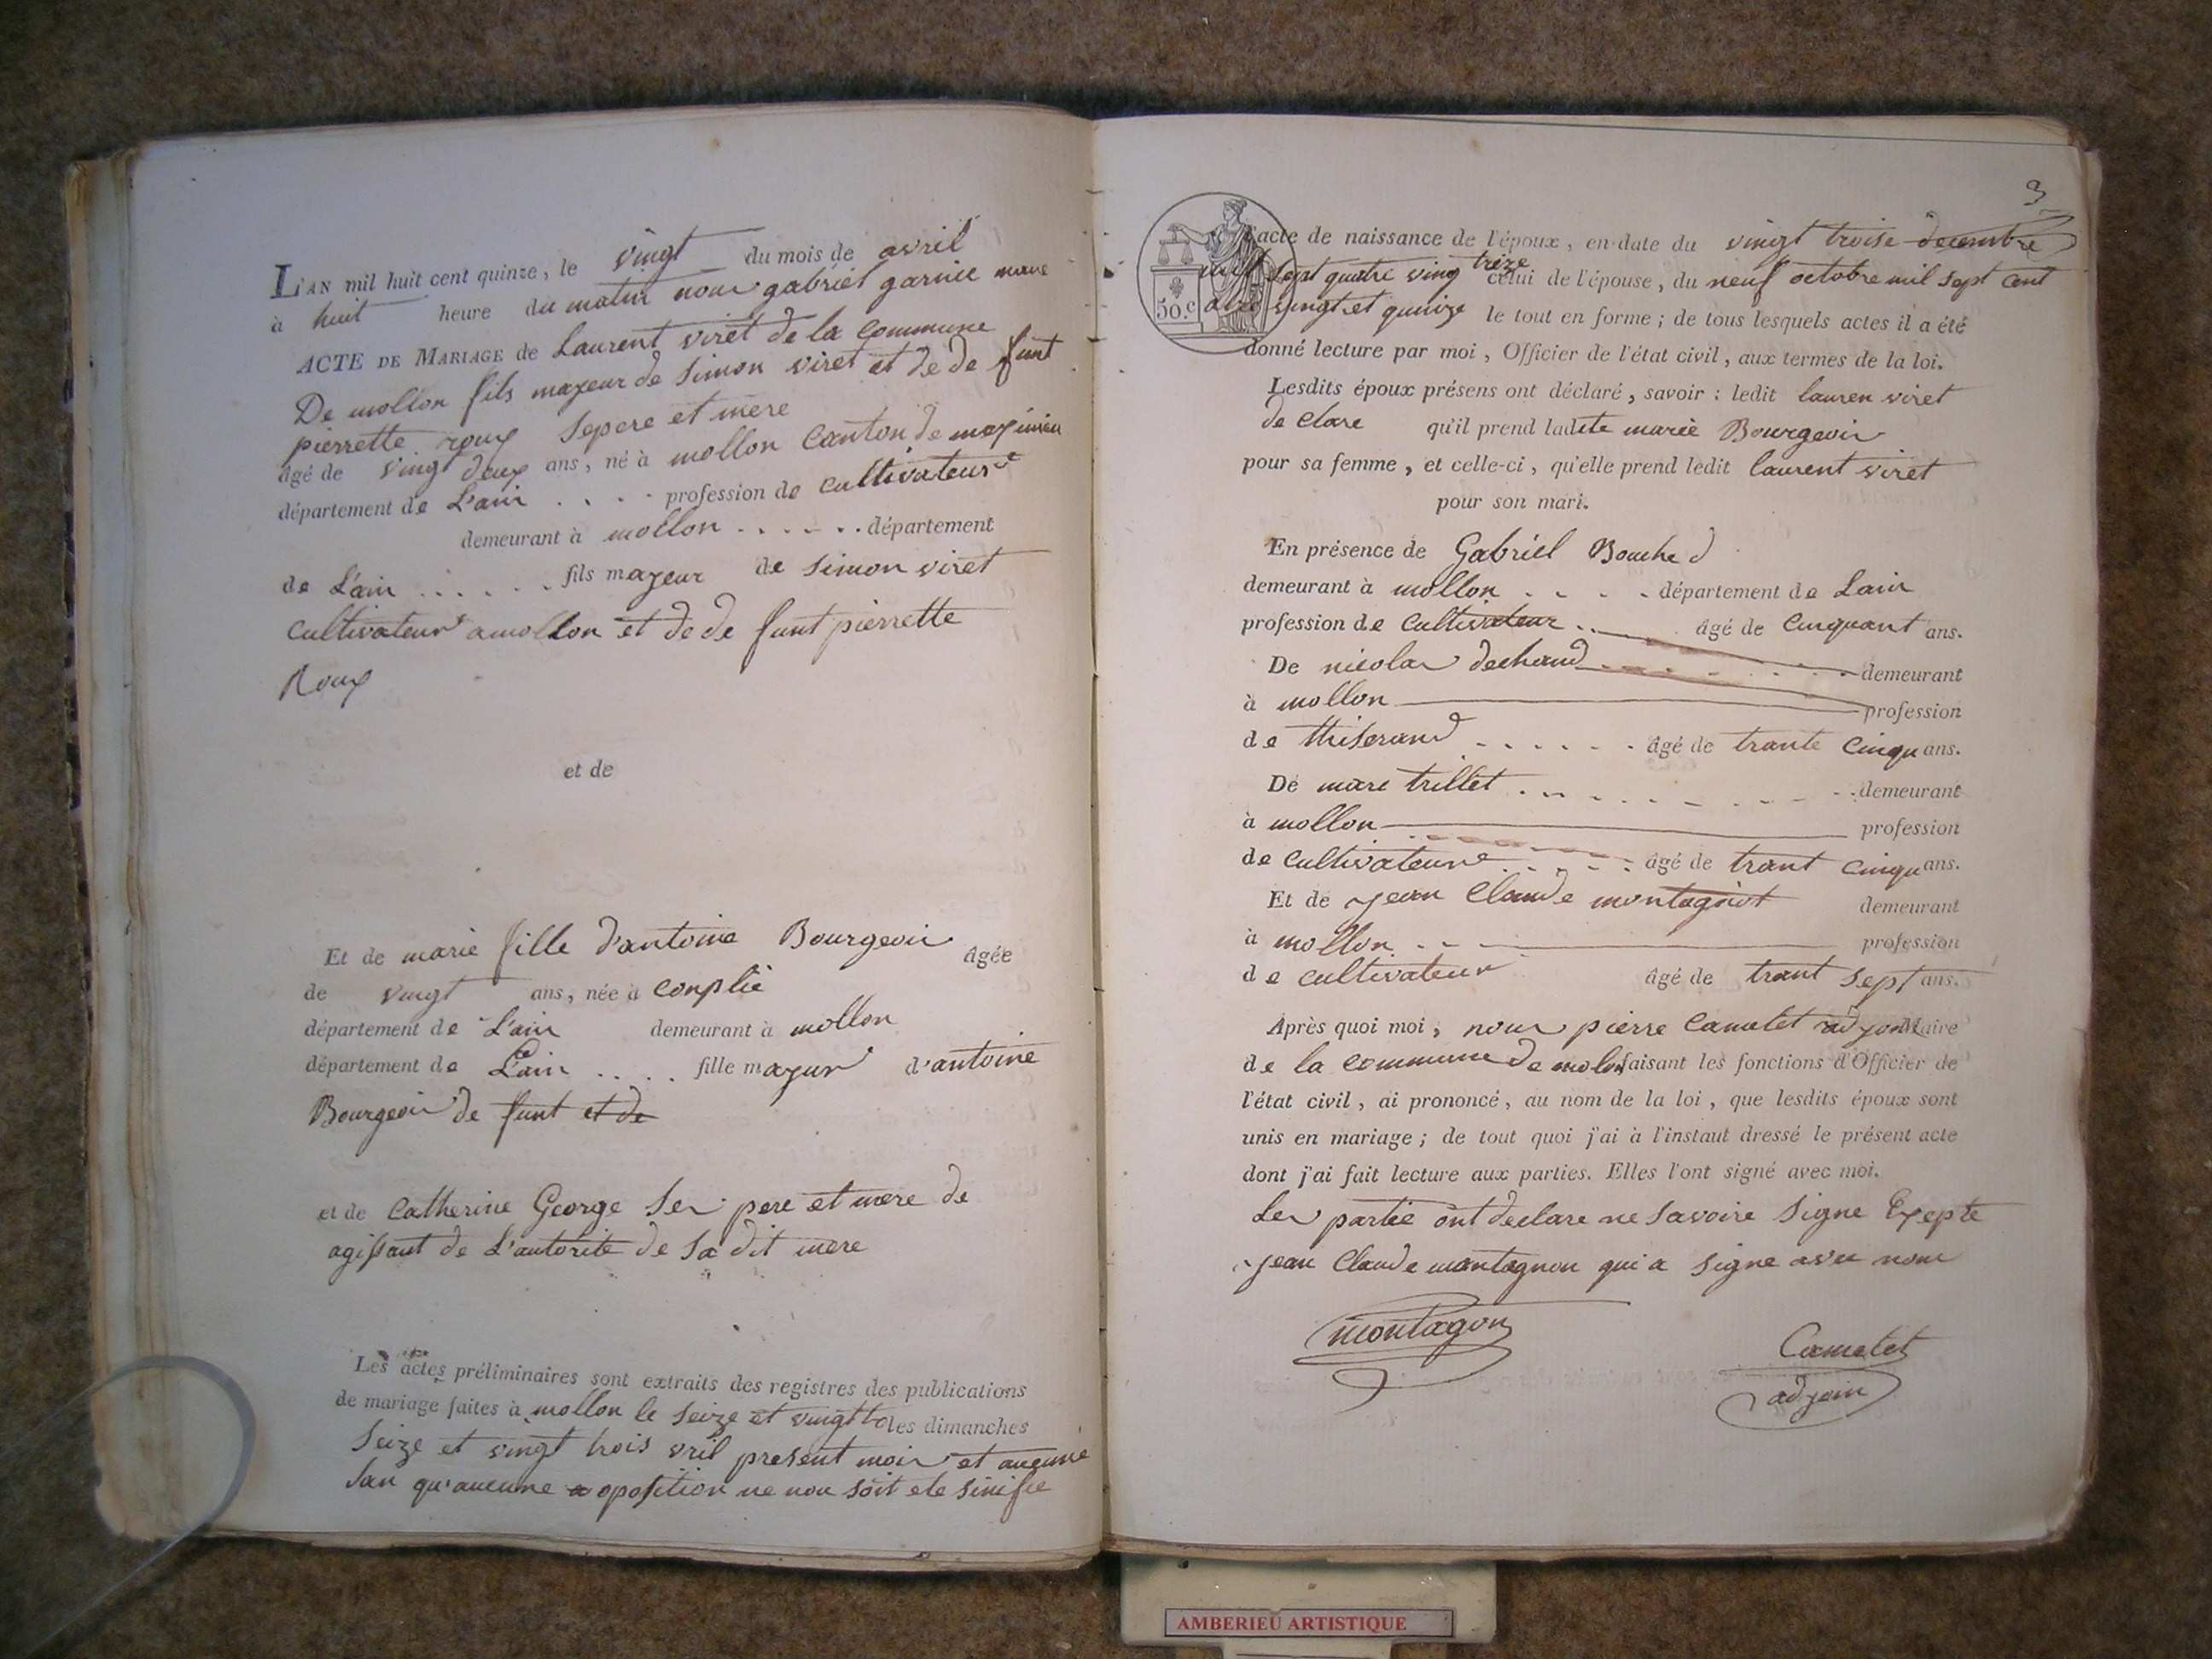 L'AN mil huit cent quinze, le vingt du mois de avril
à huit heure du matin nous gabriel garnier maire
ACTE DE MARIAGE de Laurent viret de la commune
De mollon fils majeur de simon viret et de de funt
pierrette roux se pere et mere
âgé de vingt deux ans, né à mollon canton de meximieu
département de L'ain . . . . profession de cultivateur
demeurant à mollon . . . . . . département
de L'ain . . . . . . fils majeur de simon viret
cultivateur a mollon et de de funt pierrette
Roux
et de
Et de marie fille d'antoine Bourgeois âgée
de vingt ans, née à conplie
département de L'ain demeurant à mollon
département de L'ain . . . . fille majeur d'antoine
Bourgeois de funt et de
et de Catherine George Ses pere et mere de
agissant de L'autorite de sa dit mere
Les actes préliminaires sont extraits des registres des publications
de mariage faites à mollon le seize et vingt les dimanches
seize et vingt trois vril present mois et aucune
san qu'aucune oposition ne nou soit ete sinifie
3
50.c
l'acte de naissance de l'époux, en date du vingt troise decembre
mil sept quatre ving treze celui de l'épouse, du neuf octobre mil sept cent
vingt et quinze le tout en forme ; de tous lesquels actes il a été
donné lecture par moi, Officier de l'état civil, aux termes de la loi.
Lesdits époux présens ont déclaré, savoir : ledit lauren viret
de clare qu'il prend ladite marie Bourgeois
pour sa femme, et celle-ci, qu'elle prend ledit laurent viret
pour son mari.
En présence de Gabriel Bouchd
demeurant à mollon . . . . département de Lain
profession de cultivateur . . âgé de cinquant ans.
De nicolas dechaud . . . . . . demeurant
à mollon profession
de thiserand . . . . . . âgé de trante cinqu ans.
De marc trillet . . . . . . . . demeurant
à mollon profession
de cultivateur . . . . . âgé de trant cinqu ans.
Et de jean claude montagniot demeurant
à mollon . . profession
de cultivateur âgé de trant sept ans.
Après quoi moi, nous pierre Camelet adjoint Maire
de la commune de molon faisant les fonctions d'Officier de
l'état civil, ai prononcé, au nom de la loi, que lesdits époux sont
unis en mariage ; de tout quoi j'ai à l'instaut dressé le présent acte
dont j'ai fait lecture aux parties. Elles l'ont signé avec moi.
Les partie ont declare ne savoire signe Exepte
jean Claude montagnon qui a signe avec nous
montagon
Camelet
adjoin
AMBERIEU ARTISTIQUE